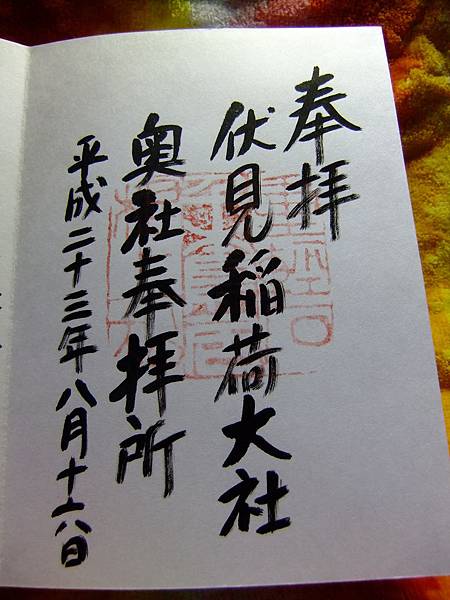 奉拝
伏見稲荷大社
奥社奉拝所
平成二十三年八月十六日